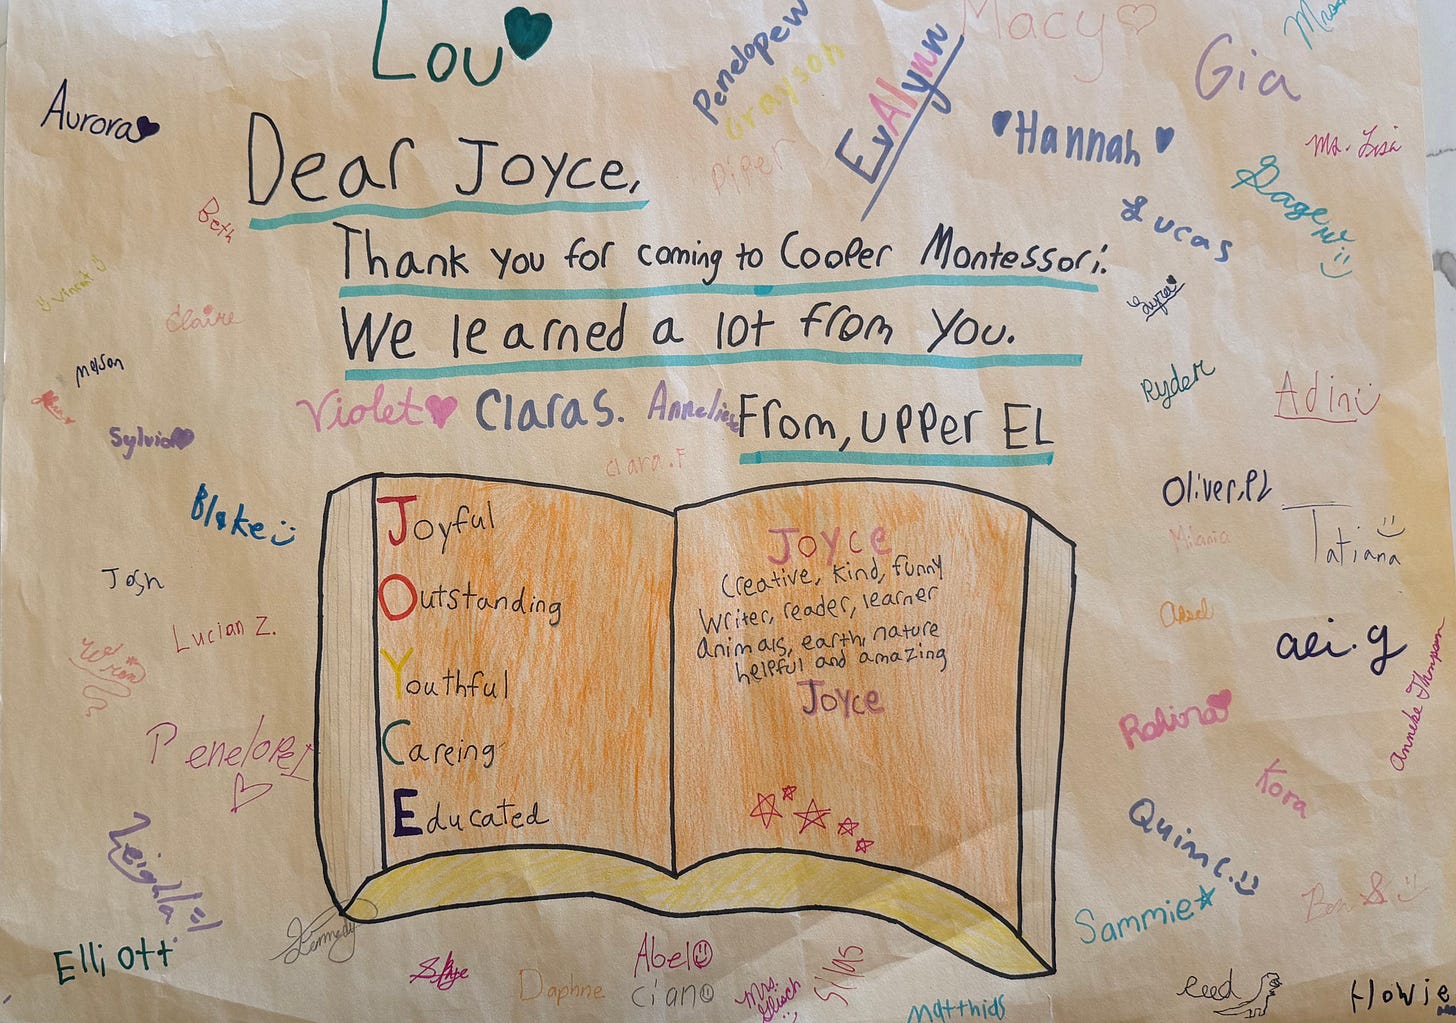 Lou
Macy
Mrs.
Penelope W
Grayson
EvAlynn
Gia
Aurora
Hannah
Ms. Lisa
Dear Joyce,
Piper
Sage
Beth
Lucas
Thank you for coming to Cooper Montessori.
Vincent
Claire
We learned a lot from you.
Ryder
Adin
Violet
Clara S.
Annelies
From, upper EL
Sylvia
Clara.F
Blake
Oliver.PL
Milania
Tatiana
Josh
Lucian Z.
Ansel
ali.g
Anneke Thompson
Joyful
Outstanding
Youthful
Careing
Educated
Joyce
Creative, kind, funny
Writer, reader, learner
animals, earth, nature
helpful and amazing
Joyce
Penelope I
Kora
Quinn C.
Leighla
Sammie
Ben S
Elliott
Kennedy
Skye
Daphne
Abel
cian
Mrs.
Silas
Matthias
Reed
Howie